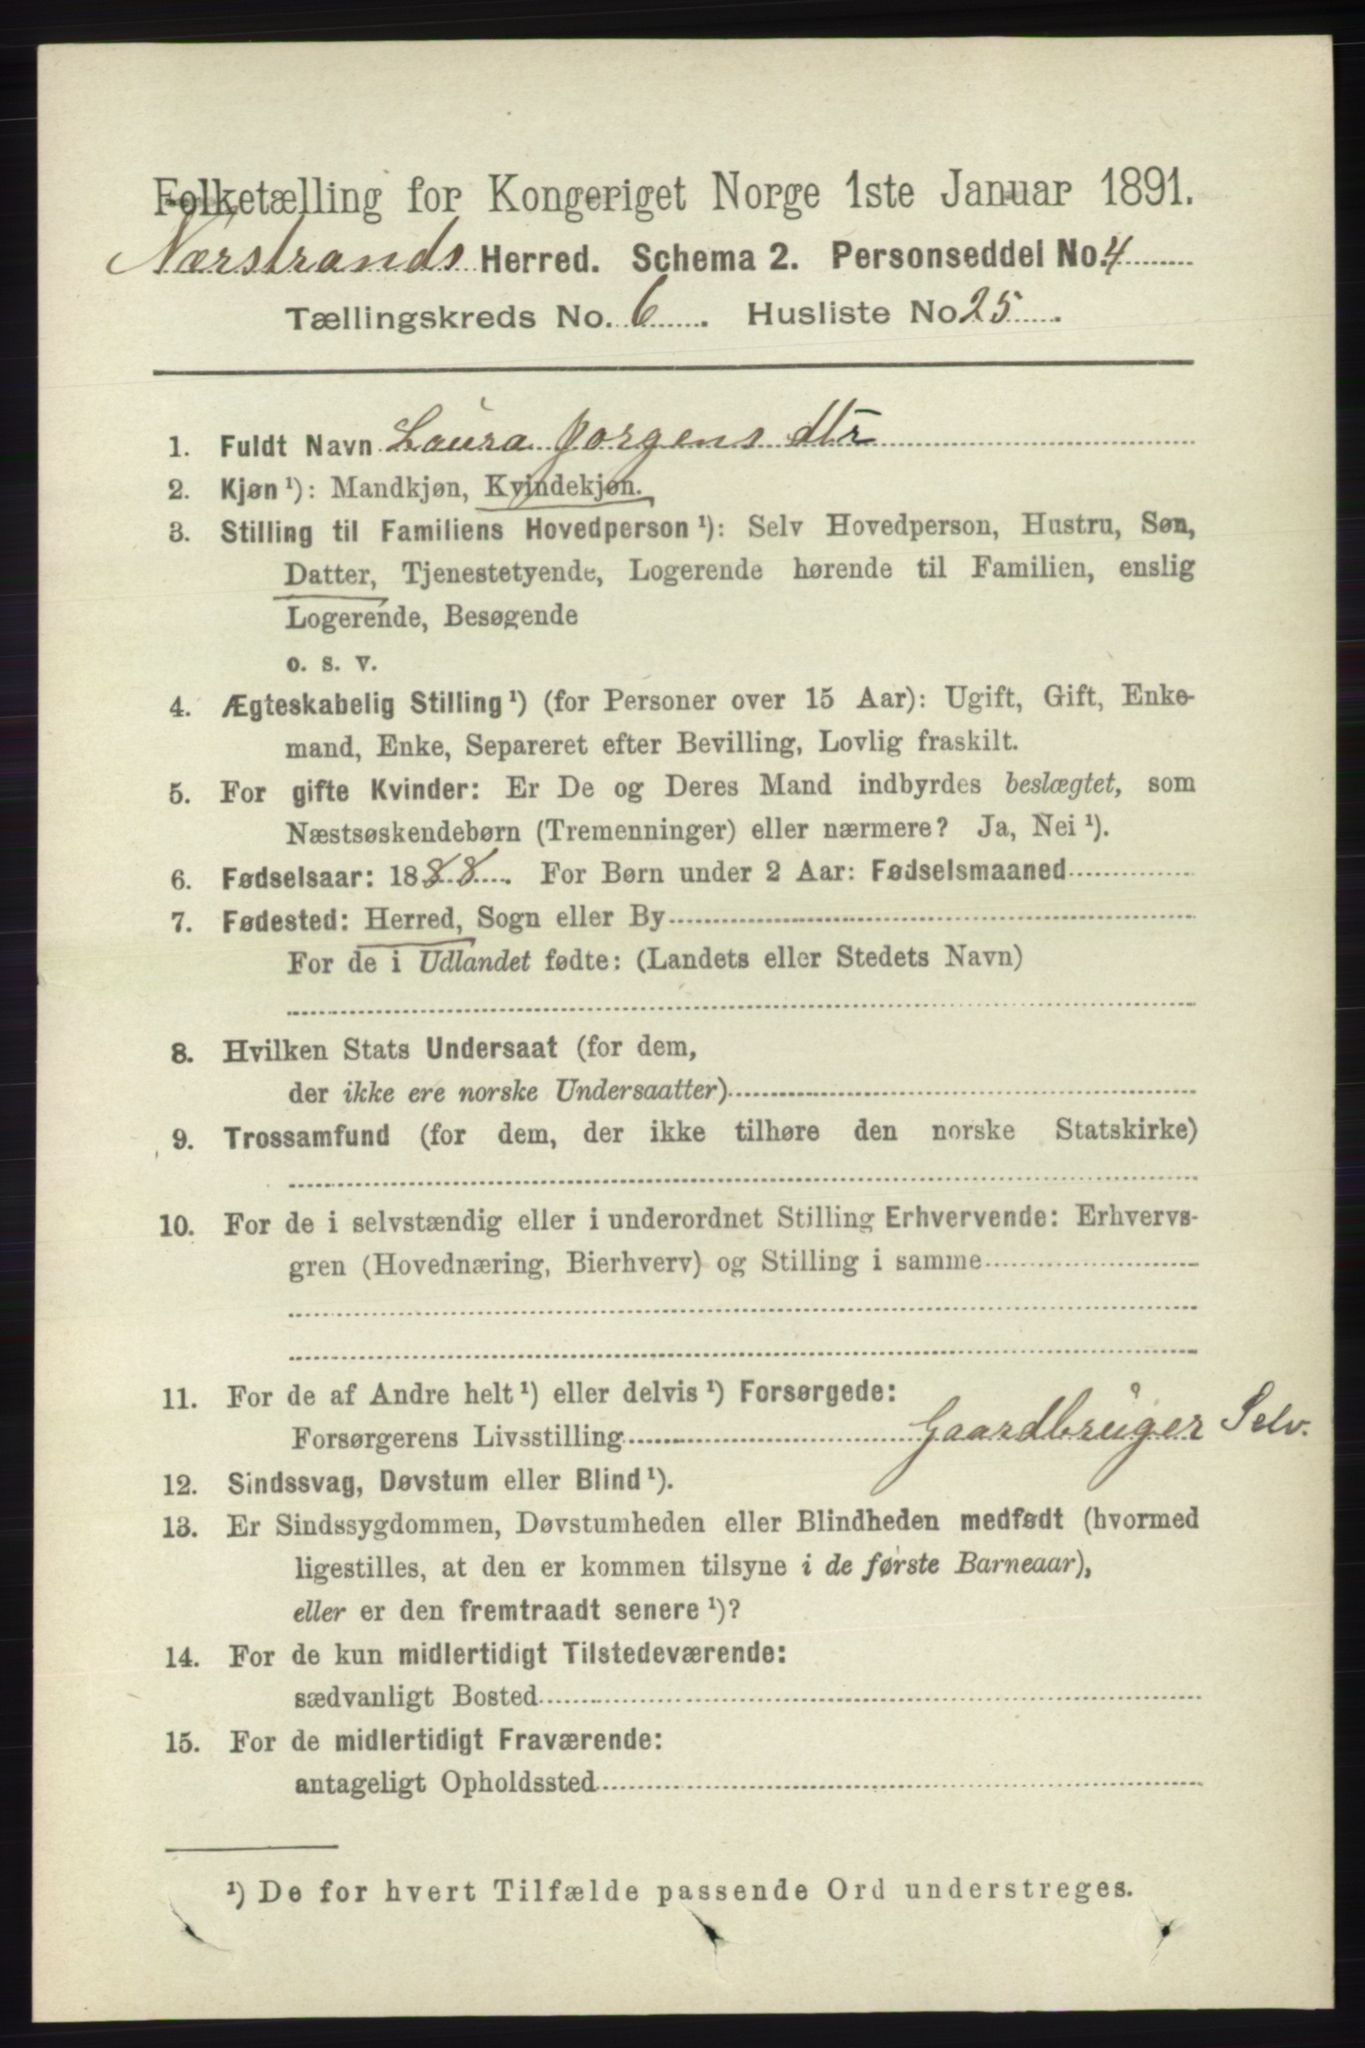 Folketælling for Kongeriget Norge 1ste Januar 1891.
Nærstrands Herred. Schema 2. Personseddel No. 4
Tællingskreds No. 6. Husliste No 25.
1. Fuldt Navn Laura Jørgens dtr
2. Kjøn ¹): Mandkjøn, Kvindekjøn.
3. Stilling til Familiens Hovedperson ¹): Selv Hovedperson, Hustru, Søn,
Datter, Tjenestetyende, Logerende hørende til Familien, enslig
Logerende, Besøgende
o. s. v.
4. Ægteskabelig Stilling ¹) (for Personer over 15 Aar): Ugift, Gift, Enke-
mand, Enke, Separeret efter Bevilling, Lovlig fraskilt.
5. For gifte Kvinder: Er De og Deres Mand indbyrdes beslægtet, som
Næstsøskendebørn (Tremenninger) eller nærmere? Ja, Nei ¹).
6. Fødselsaar: 1888. For Børn under 2 Aar: Fødselsmaaned
7. Fødested: Herred, Sogn eller By
For de i Udlandet fødte: (Landets eller Stedets Navn)
8. Hvilken Stats Undersaat (for dem,
der ikke ere norske Undersaatter)
9. Trossamfund (for dem, der ikke tilhøre den norske Statskirke)
10. For de i selvstændig eller i underordnet Stilling Erhvervende: Erhvervs-
gren (Hovednæring, Bierhverv) og Stilling i samme
11. For de af Andre helt ¹) eller delvis ¹) Forsørgede:
Forsørgerens Livsstilling Gaardbruger Selv.
12. Sindssvag, Døvstum eller Blind ¹).
13. Er Sindssygdommen, Døvstumheden eller Blindheden medfødt (hvormed
ligestilles, at den er kommen tilsyne i de første Barneaar),
eller er den fremtraadt senere ¹)?
14. For de kun midlertidigt Tilstedeværende:
sædvanligt Bosted
15. For de midlertidigt Fraværende:
antageligt Opholdssted
¹) De for hvert Tilfælde passende Ord understreges.